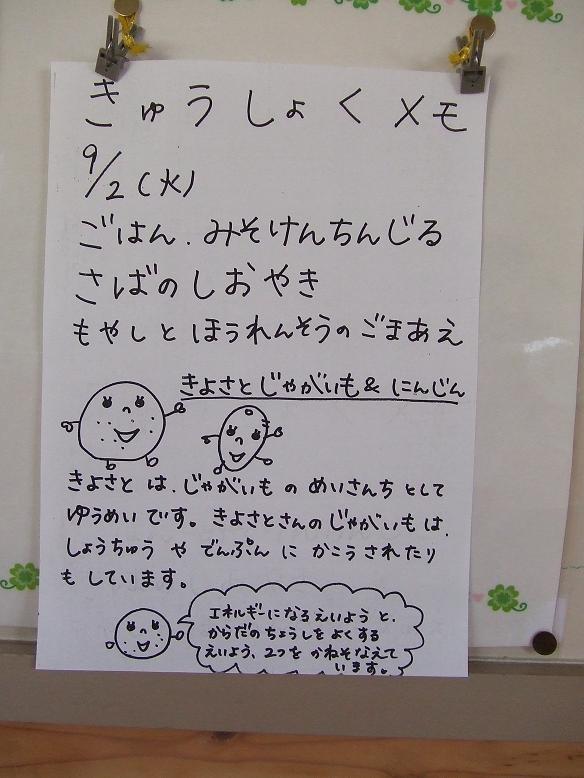 きゅうしょくメモ
9/2(火)
ごはん.みそけんちんじる
さばのしおやき
もやしとほうれんそうのごまあえ
きよさとじゃがいも&にんじん
きよさとは、じゃがいものめいさんちとして
ゆうめいです。きよさとさんのじゃがいもは、
しょうちゅうやでんぷんにかこうされたり
もしています。
エネルギーになるえいようと、
からだのちょうしをよくする
えいよう、2つをかねそなえて
います。